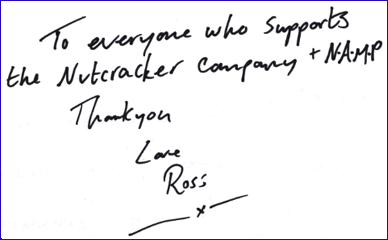 To everyone who supports
the Nutcracker Company + N.A.M.P
Thankyou
Love
Ross
x